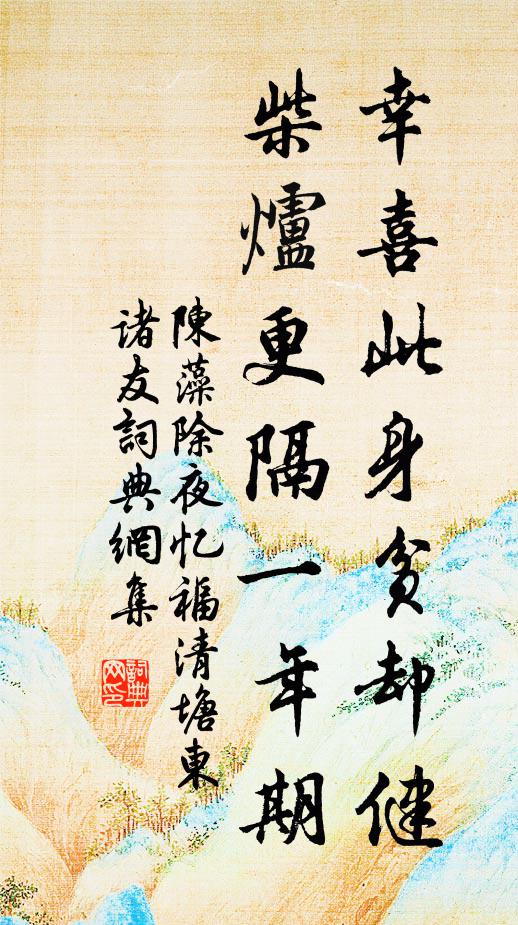 幸喜此身貧却健
柴爐更隔一年期
陳藻除夜忆福清塘東
诸友詞典網集
詞典
网印